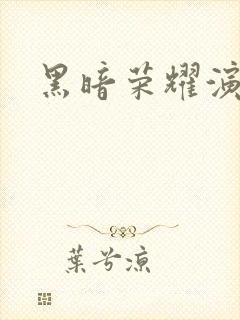 黑暗荣耀演
葉兮凉